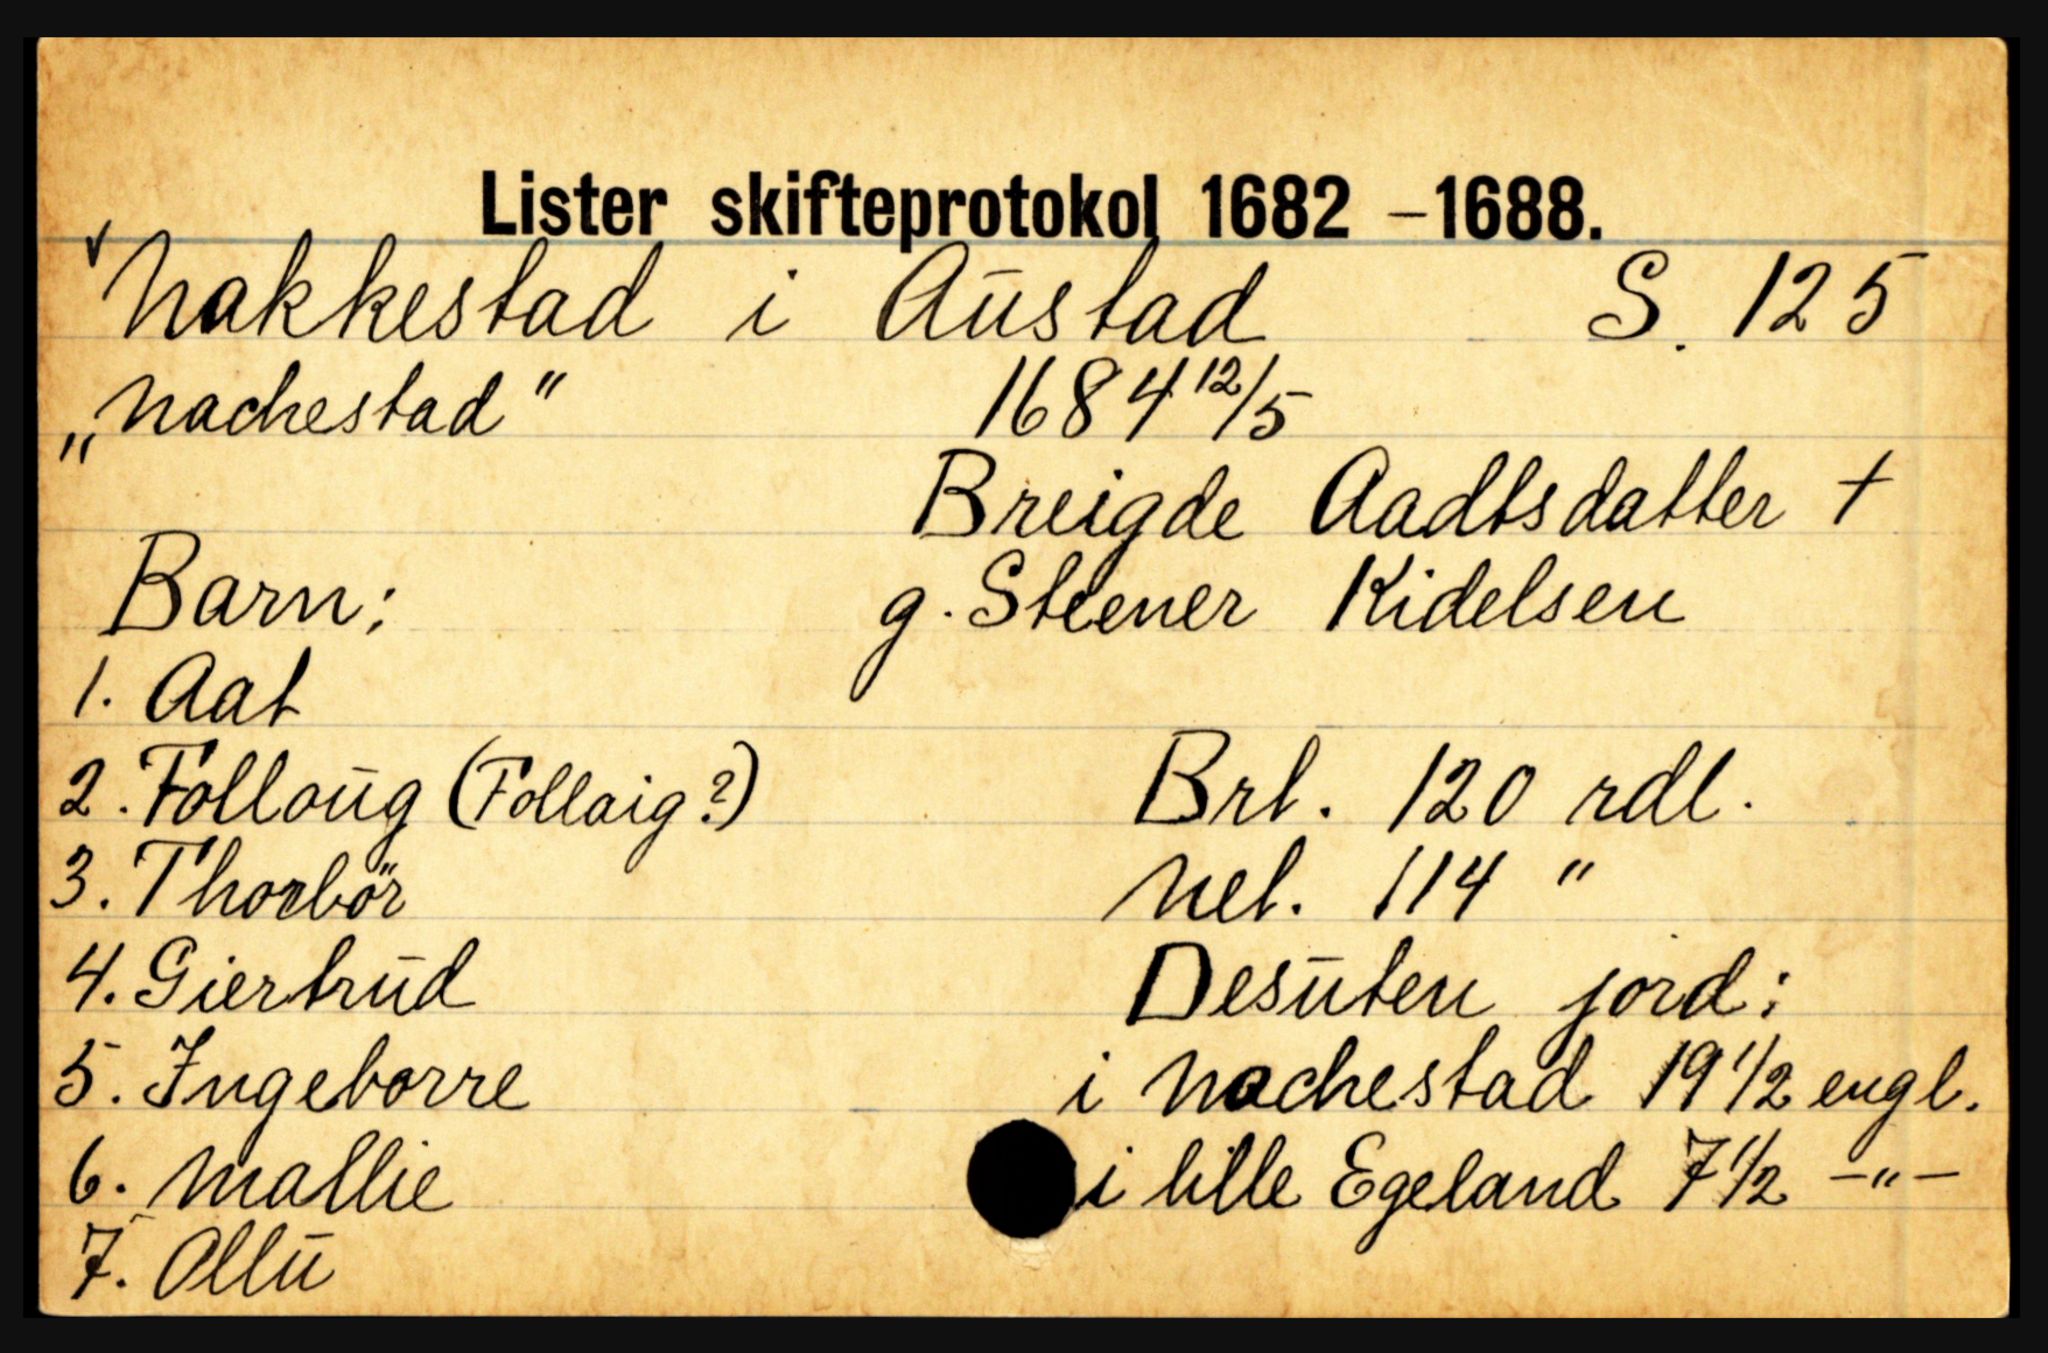 Lister skifteprotokol 1682 –1688.
√ Nakkestad i Aūstad S. 125
„Nachestad" 1684 12/5
Breigde Aadtsdatter +
Barn: g. Steener Kidelsen
1. Aat
2. Folloūg (Follaig?) Brt. 120 rdl.
3. Thorbör Net. 114 "
4. Giertrūd Desūten jord:
5. Ingeborre i Nachestad 19 1/2 engl.
6. Mallie i lille Egeland 7 1/2 –"–
7. Ollū